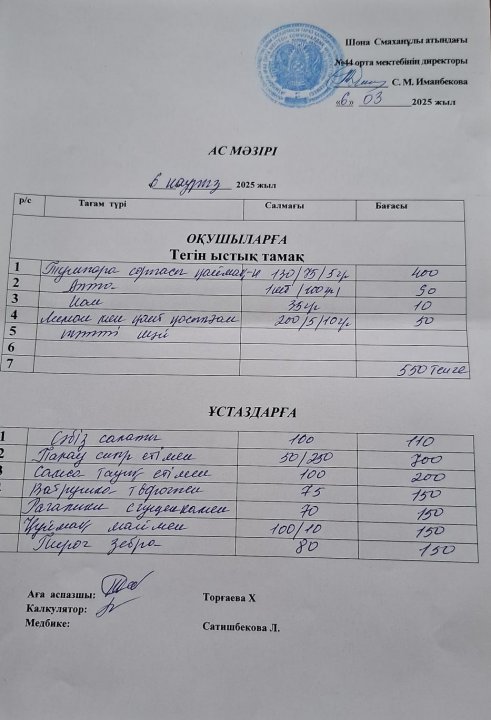 Шона Смаханұлы атындағы
№44 орта мектебінің директоры
С. М. Иманбекова
«6» 03 2025 жыл
АС МӘЗІРІ
6 наурыз 2025 жыл
р/с Тағам түрі Салмағы Бағасы
ОҚУШЫЛАРҒА
Тегін ыстық тамақ
1 сорпасы қаймақ 130/75/5гр 400
2 1шт/100гр 90
3 Нан 35гр 10
4 Лимон мен қант қосылған 200/5/10гр 50
5 тәтті шәй
6
7 550 тенге
ҰСТАЗДАРҒА
1 Сәбіз салаты 100 110
2 сипр етімен 50/250 700
Самса тауық етімен 100 200
Ватрушка творогпен 75 150
Рагалики сгущенкамен 70 150
Құймақ маймен 100/10 150
Пирог зебра 80 150
Аға аспазшы: Торғаева Х
Калкулятор:
Медбике: Сатишбекова Л.